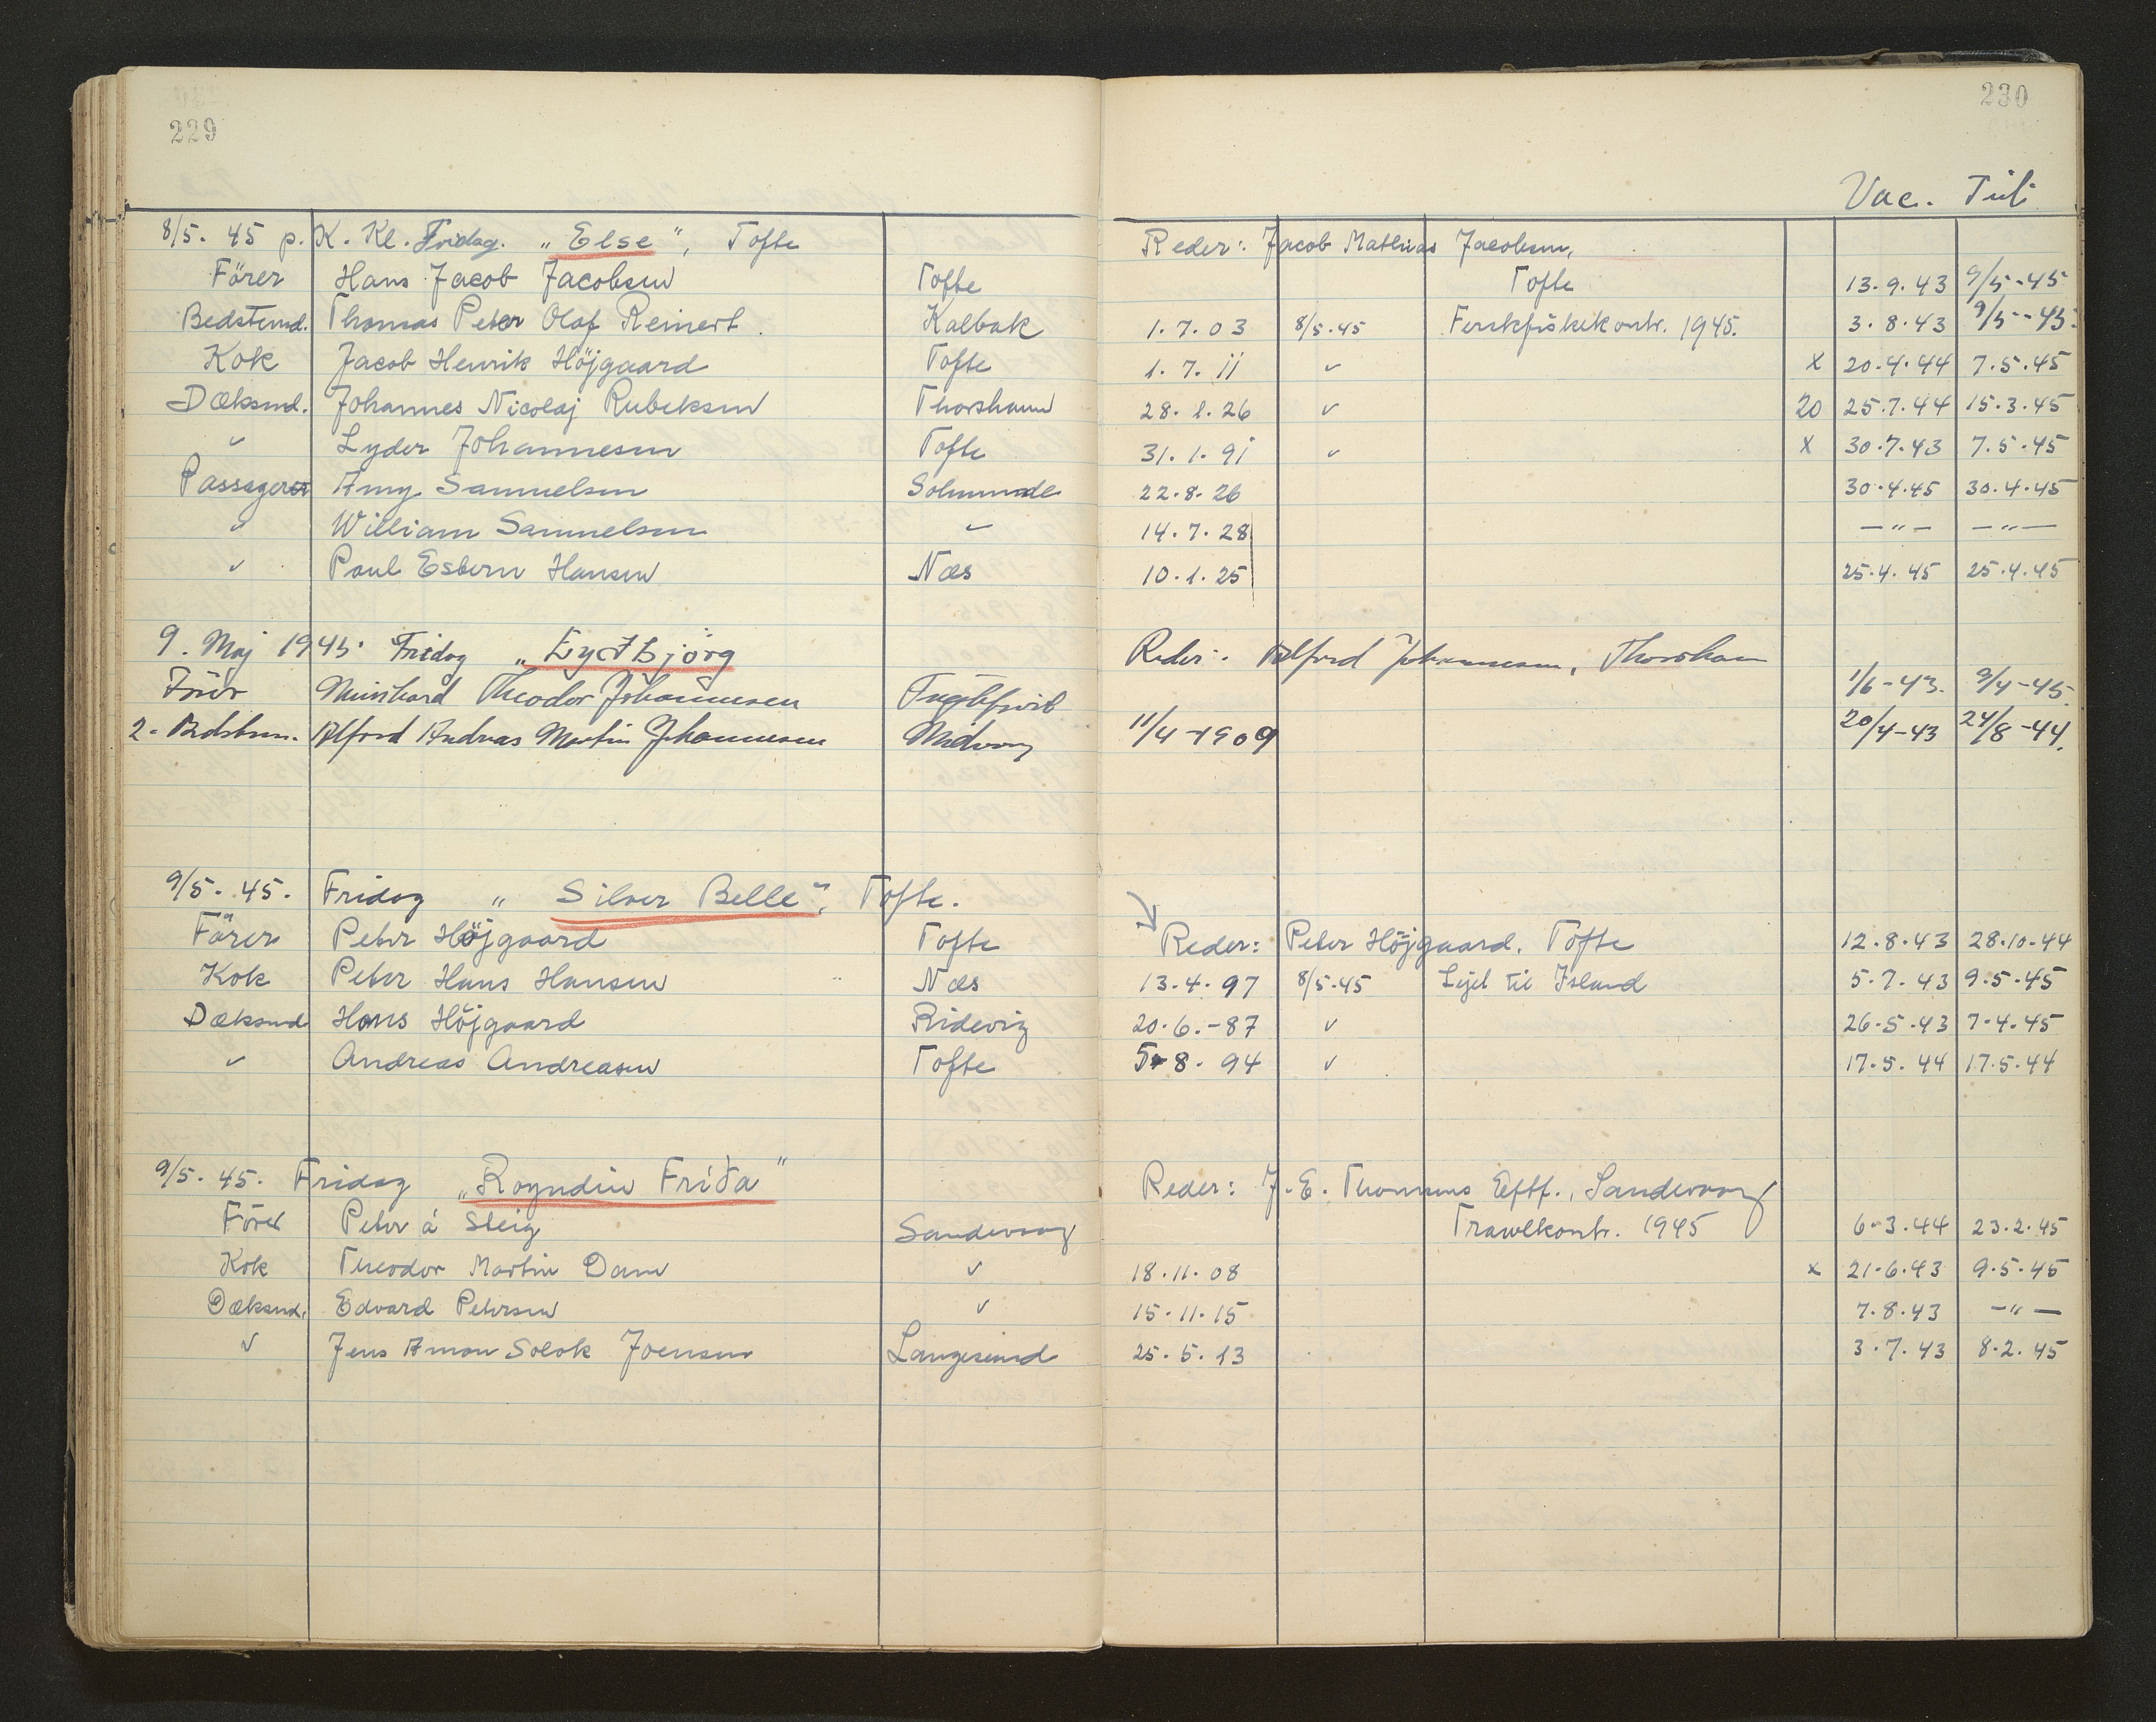 229
8/5. 45 p. K. Kl. Fridag. „Else", Tofte
Förer Hans Jacob Jacobsen Tofte
Bedstemd. Thomas Peter Olaf Reinert. Kalbak
Kok Jacob Henrik Höjgaard Tofte
Dæksmd. Johannes Nicolaj Rubeksen Thorshavn
" Lyder Johannesen Tofte
Passagerer Amy Samuelsen Solmunde
" William Samuelsen "
" Poul Esbern Hansen Næs
9. Maj 1945. Fridag
Förer Theodor Johannesen
2. Alfred Andreas Martin Johannesen Midvaag
9/5. 45. Fridag „Silver Belle", Tofte.
Förer Peter Höjgaard Tofte
Kok Peter Hans Hansen Næs
Dæksmd Hans Höjgaard Ridevig
" Andreas Andreasen Tofte
9/5. 45. Fridag „Royndin Fríða"
Förer Peter á Steig Sandevaag
Kok Theodor Martin Dam "
Dæksmd. Edvard Petersen "
" Jens Amon Solok Joensen
230
Vac. Tub
Reder: Jacob Mathias Jacobsen,
Tofte 13.9.43 9/5-45
1.7.03 8/5.45 Ferskfiskekontr. 1945. 3.8.43 9/5-45.
1.7.11 " x 20.4.44 7.5.45
28.1.26 " 20 25.7.44 15.3.45
31.1.91 " x 30.7.43 7.5.45
22.8.26 30.4.45 30.4.45
14.7.28 —"— —"—
10.1.25 25.4.45 25.4.45
Reder: Alfred Johannesen, Thorshavn
1/6-43. 9/4-45.
11/4-1909 20/4-43 24/8-44.
Reder: Peter Höjgaard, Tofte 12.8.43 28.10.44
13.4.97 8/5.45 Lejet til Island 5.7.43 9.5.45
20.6.-87 " 26.5.43 7.4.45
5-8.94 " 17.5.44 17.5.44
Reder: J. E. Thomsens Eftf., Sandevaag
Trawlkontr. 1945 6.3.44 23.2.45
18.11.08 x 21.6.43 9.5.45
15.11.15 7.8.43 —"—
25.5.13 3.7.43 8.2.45